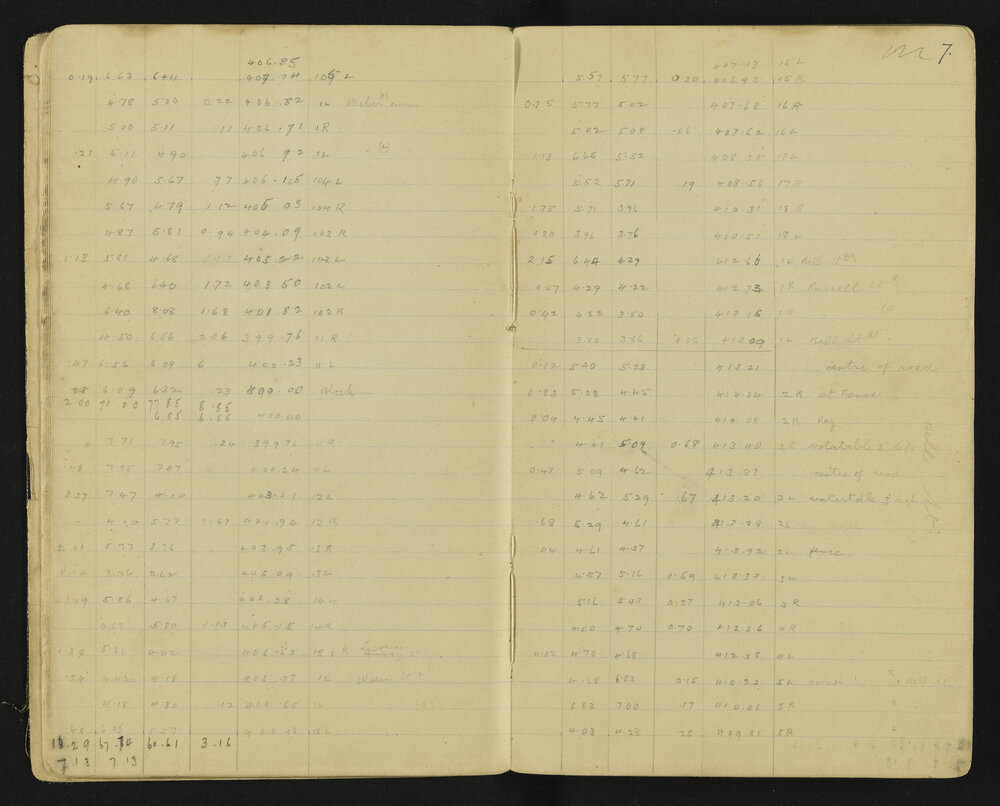 406.85
0.19 6.63 6.44 105 L
4.78 5.00 0.22 406.82 1L
5.00 5.11 .11 406.71 1R
.21 5.11 4.90 406.92 1L
4.90 5.67 .77 406.15 104 L
5.67 6.79 1.12 405.03 104 R
4.87 5.81 0.94 404.09 103 R
1.13 5.81 4.68 405.22 102 L
4.68 6.40 1.72 403.50 102 L
6.40 8.08 1.68 401.82 102 R
4.50 6.56 2.06 399.76 11 R
.47 6.56 6.09 400.23 11 L
6.09 6.32 .23 400.00 Block
2.00 71.00 77.85 8.85
6.85 6.85 400.00
7.71 7.95 .24 399.76 11 R
.48 7.95 7.47 400.24 11 L
3.37 7.47 4.10 403.61 12 L
4.10 5.77 1.67 401.94 12 R
2.01 5.77 3.76 403.95 13 R
1.14 3.76 2.62 405.09 13 L
1.19 5.86 4.67 406.28 14 L
4.67 5.80 1.13 405.15 14 R
1.38 5.80 4.42 406.53
.24 4.42 4.18 406.77 1L
4.18 4.30 .12 406.65 1L
16.29 67.74 60.61 3.16
7.13 7.13
7.
407.13 15 L
5.57 5.77 0.20 406.93 15 R
0.75 5.77 5.02 407.68 16 R
5.02 5.08 .06 407.62 16 L
1.13 6.65 5.52 408.75 17 L
5.52 5.71 .19 408.56 17 R
1.75 5.71 3.96 410.31 18 R
0.20 3.96 3.76 410.51 18 L
2.15 6.44 4.29 412.66 1L Bell St
0.07 4.29 4.22 412.73 1R Russell St
0.42 4.22 3.80 413.15 1R
3.80 3.86 0.06 413.09 1L Bell St
0.12 5.40 5.28 413.21 centre of road
0.83 5.28 4.45 414.04 2R at Fence
0.04 4.45 4.41 414.08 2R Peg
4.41 5.09 0.68 413.40 2R watertable 3'
0.47 5.09 4.62 413.87 centre of road
4.62 5.29 .67 413.20 2L watertable 3'
.68 5.29 4.61 413.88 2L
.04 4.61 4.57 413.92 2L fence
4.57 5.16 0.59 413.33 3L
5.16 5.43 0.27 413.06 3R
4.00 4.70 0.70 412.36 4R
0.02 4.70 4.68 412.38 4L
4.68 6.83 2.15 410.23 5L corner
6.83 7.00 .17 410.06 5R
4.03 4.28 .25 409.81 5R